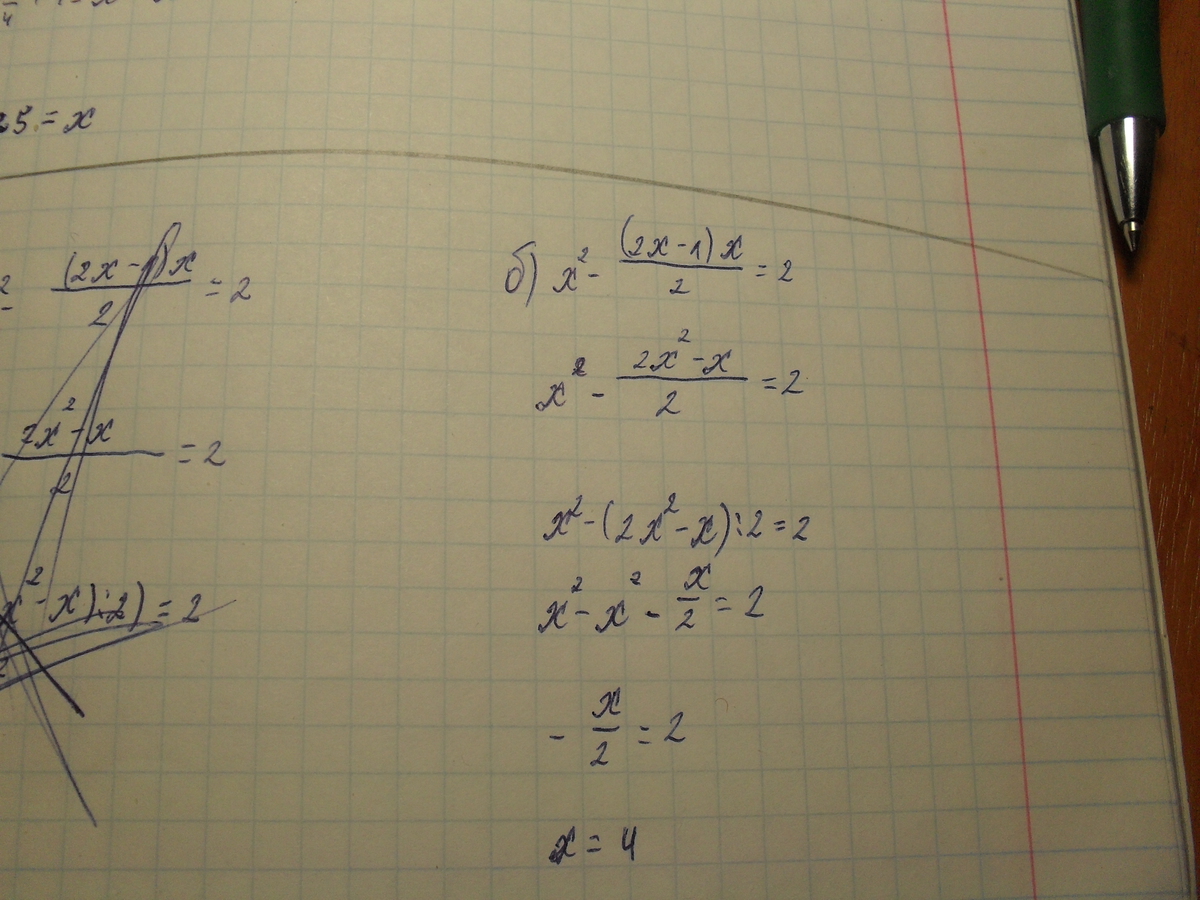 25 = x
(2x - 1)x / 2 = 2
7x² - x / 2 = 2
x² - x) : 2) = 2
б) x² - (2x - 1)x / 2 = 2
x² - 2x² - x / 2 = 2
x² - (2x² - x) : 2 = 2
x² - x² - x/2 = 2
- x/2 = 2
x = 4